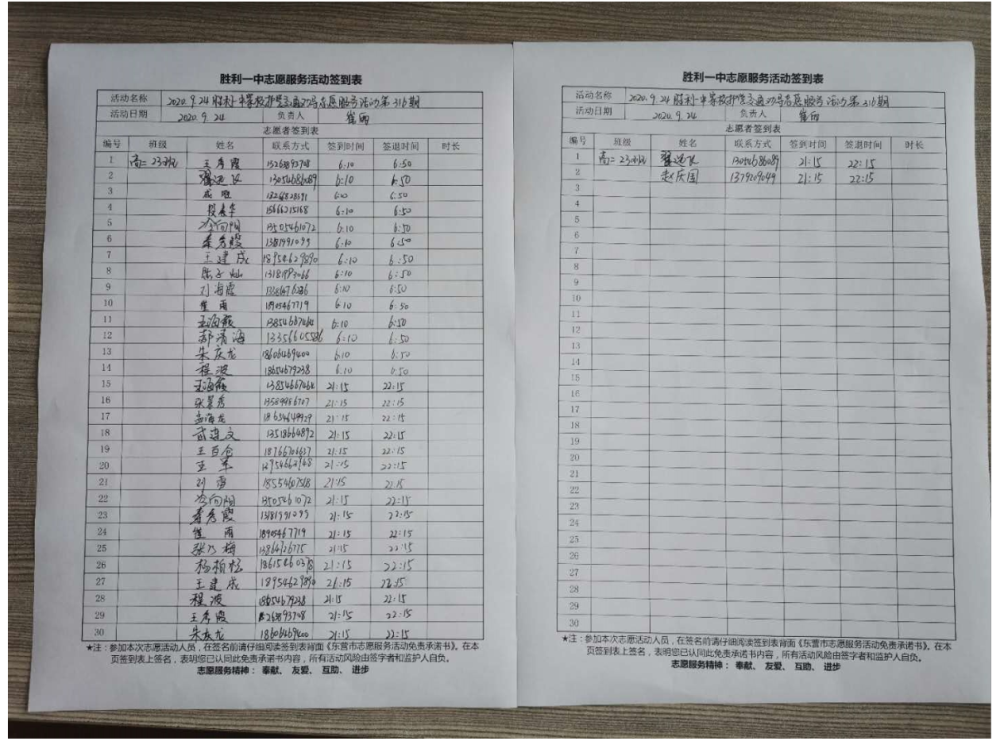 胜利一中志愿服务活动签到表
活动名称 2020.9.24 胜利一中等校护警交通 志愿服务活动第316期
活动日期 2020.9.24 负责人 崔雨
志愿者签到表
编号 班级 姓名 联系方式 签到时间 签退时间 时长
1 高二23班 王秀霞 6:10 6:50
2 6:10 6:50
3 6:10 6:50
4 6:10 6:50
5 冷向阳 13505461072 6:10 6:50
6 秦秀霞 13181991099 6:10 6:50
7 王建成 18954629890 6:10 6:50
8 6:10 6:50
9 刘海霞 6:10 6:50
10 崔雨 18905467719 6:10 6:50
11 王海薇 13854667064 6:10 6:50
12 郝清海 6:10 6:50
13 朱庆龙 18606469400 6:10 6:50
14 程波 18654679238 6:10 6:50
15 王海薇 13854667064 21:15 22:15
16 21:15 22:15
17 21:15 22:15
18 武建文 13518664892 21:15 22:15
19 王百合 21:15 22:15
20 王军 21:15 22:15
21 21:15 21:15
22 冷向阳 13505461072 21:15 22:15
23 秦秀霞 13181991099 21:15 22:15
24 崔雨 18905467719 21:15 22:15
25 张乃梅 21:15 22:15
26 杨柏松 21:15 22:15
27 王建成 18954629890 21:15 22:15
28 程波 18654679238 21:15 22:15
29 王秀霞 21:15 22:15
30 朱庆龙 18606469400 21:15 22:15
★注：参加本次志愿活动人员，在签名前请仔细阅读签到表背面《东营市志愿服务活动免责承诺书》。在本
页签到表上签名，表明您已认同此免责承诺书内容，所有活动风险由签字者和监护人自负。
志愿服务精神： 奉献、 友爱、 互助、 进步
胜利一中志愿服务活动签到表
活动名称 2020.9.24 胜利一中等校护警交通 志愿服务活动第316期
活动日期 2020.9.24 负责人 崔雨
志愿者签到表
编号 班级 姓名 联系方式 签到时间 签退时间 时长
1 高二23班 13054686089 21:15 22:15
2 赵庆国 21:15 22:15
3
4
5
6
7
8
9
10
11
12
13
14
15
16
17
18
19
20
21
22
23
24
25
26
27
28
29
30
★注：参加本次志愿活动人员，在签名前请仔细阅读签到表背面《东营市志愿服务活动免责承诺书》。在本
页签到表上签名，表明您已认同此免责承诺书内容，所有活动风险由签字者和监护人自负。
志愿服务精神： 奉献、 友爱、 互助、 进步